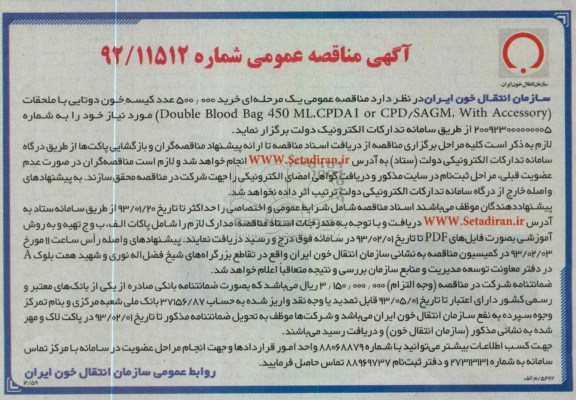 سازمان انتقال خون ایران
آگهی مناقصه عمومی شماره ۹۲/۱۱۵۱۲
سازمان انتقال خون ایران در نظر دارد مناقصه عمومی یک مرحله‌ای خرید ۵۰۰/۰۰۰ عدد کیسه خون دوتایی با ملحقات
(Double Blood Bag 450 ML.CPDA1 or CPD/SAGM, With Accessory) مورد نیاز خود را به شماره
۲۰۰۹۲۳۰۰۰۰۰۰۰۵ از طریق سامانه تدارکات الکترونیک دولت برگزار نماید.
لازم به ذکر است کلیه مراحل برگزاری مناقصه از دریافت اسناد مناقصه تا ارائه پیشنهاد مناقصه‌گران و بازگشایی پاکات‌ها از طریق درگاه
سامانه تدارکات الکترونیکی دولت (ستاد) به آدرس WWW.Setadiran.ir انجام خواهد شد و لازم است مناقصه‌گران در صورت عدم
عضویت قبلی، مراحل ثبت‌نام در سایت مذکور و دریافت گواهی امضای الکترونیکی را جهت شرکت در مناقصه محقق سازند. به پیشنهادهای
واصله خارج از درگاه سامانه تدارکات الکترونیکی دولت ترتیب اثر داده نخواهد شد.
پیشنهاددهندگان موظف می‌باشند اسناد مناقصه شامل شرایط عمومی و اختصاصی را حداکثر تا تاریخ ۹۳/۰۱/۲۰ از طریق سامانه ستاد به
آدرس WWW.Setadiran.ir دریافت و با توجه به مندرجات اسناد مناقصه مدارک لازم را شامل پاکات الف، ب و ج تهیه و به روش
آموزشی بصورت فایل‌های PDF تا تاریخ ۹۳/۰۲/۰۱ در سامانه فوق درج و رسید دریافت نمایند. پیشنهادهای واصله رأس ساعت ۱۱ مورخ
۹۳/۰۲/۰۳ در کمیسیون مناقصه به نشانی سازمان انتقال خون ایران واقع در تقاطع بزرگراه‌های شیخ فضل اله نوری و شهید همت بلوک A
در دفتر معاونت توسعه مدیریت و منابع سازمان بررسی و نتیجه متعاقبا اعلام خواهد شد.
ضمانتنامه شرکت در مناقصه (وجه التزام) ۳/۱۵۰/۰۰۰/۰۰۰ ریال می‌باشد که بصورت ضمانتنامه بانکی صادره از یکی از بانک‌های معتبر و
رسمی کشور دارای اعتبار تا تاریخ ۹۳/۰۵/۰۱ قابل تمدید یا وجه نقد واریز شده به حساب ۳۷۱۵۶/۸۷ بانک ملی شعبه مرکزی و بنام تمرکز
وجوه سپرده به نفع سازمان انتقال خون ایران می‌باشد و شرکت‌ها موظف به تحویل ضمانتنامه مذکور تا تاریخ ۹۳/۰۲/۰۱ در پاکت لاک و مهر
شده به نشانی مذکور (سازمان انتقال خون) و دریافت رسید می‌باشند.
جهت کسب اطلاعات بیشتر می‌توانید با شماره ۸۸۰۶۸۸۷۹ واحد امور قراردادها و جهت انجام مراحل عضویت در سامانه با مرکز تماس
سامانه به شماره ۲۷۳۱۳۱۳۱ و دفتر ثبت‌نام ۸۸۹۶۹۷۳۷ تماس حاصل فرمایید.
روابط عمومی سازمان انتقال خون ایران